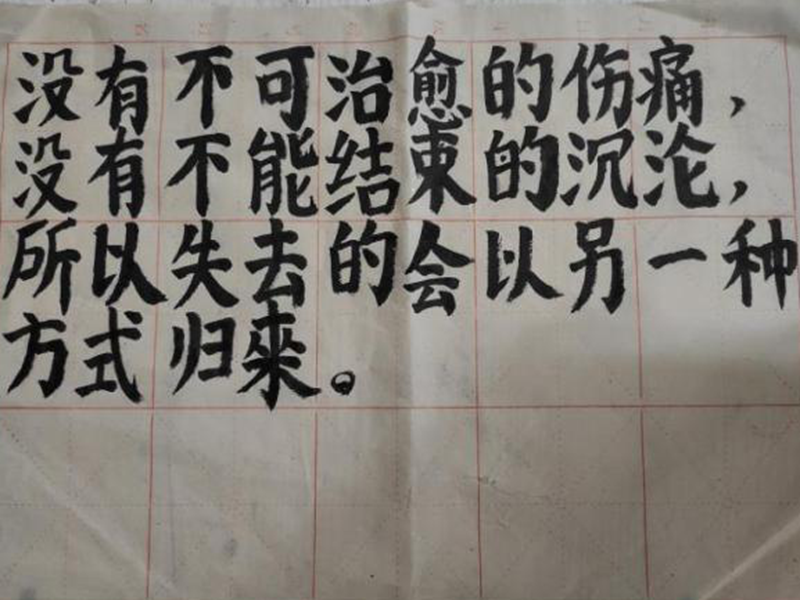 没有不可治愈的伤痛，
没有不能结束的沉沦，
所以失去的会以另一种
方式归來。